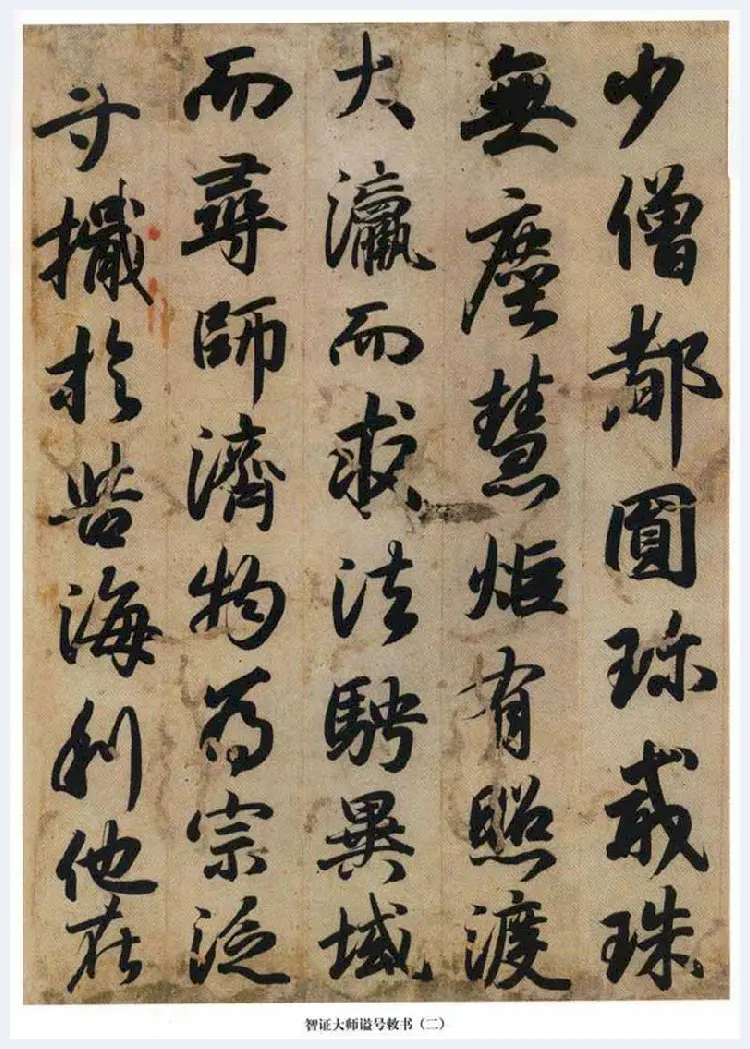 少僧都圓珍戒珠
無塵慧炬有照渡
大瀛而求法騁異域
而尋師濟物為宗泛
寸檝於苦海利他在
智证大师谥号敕书（二）